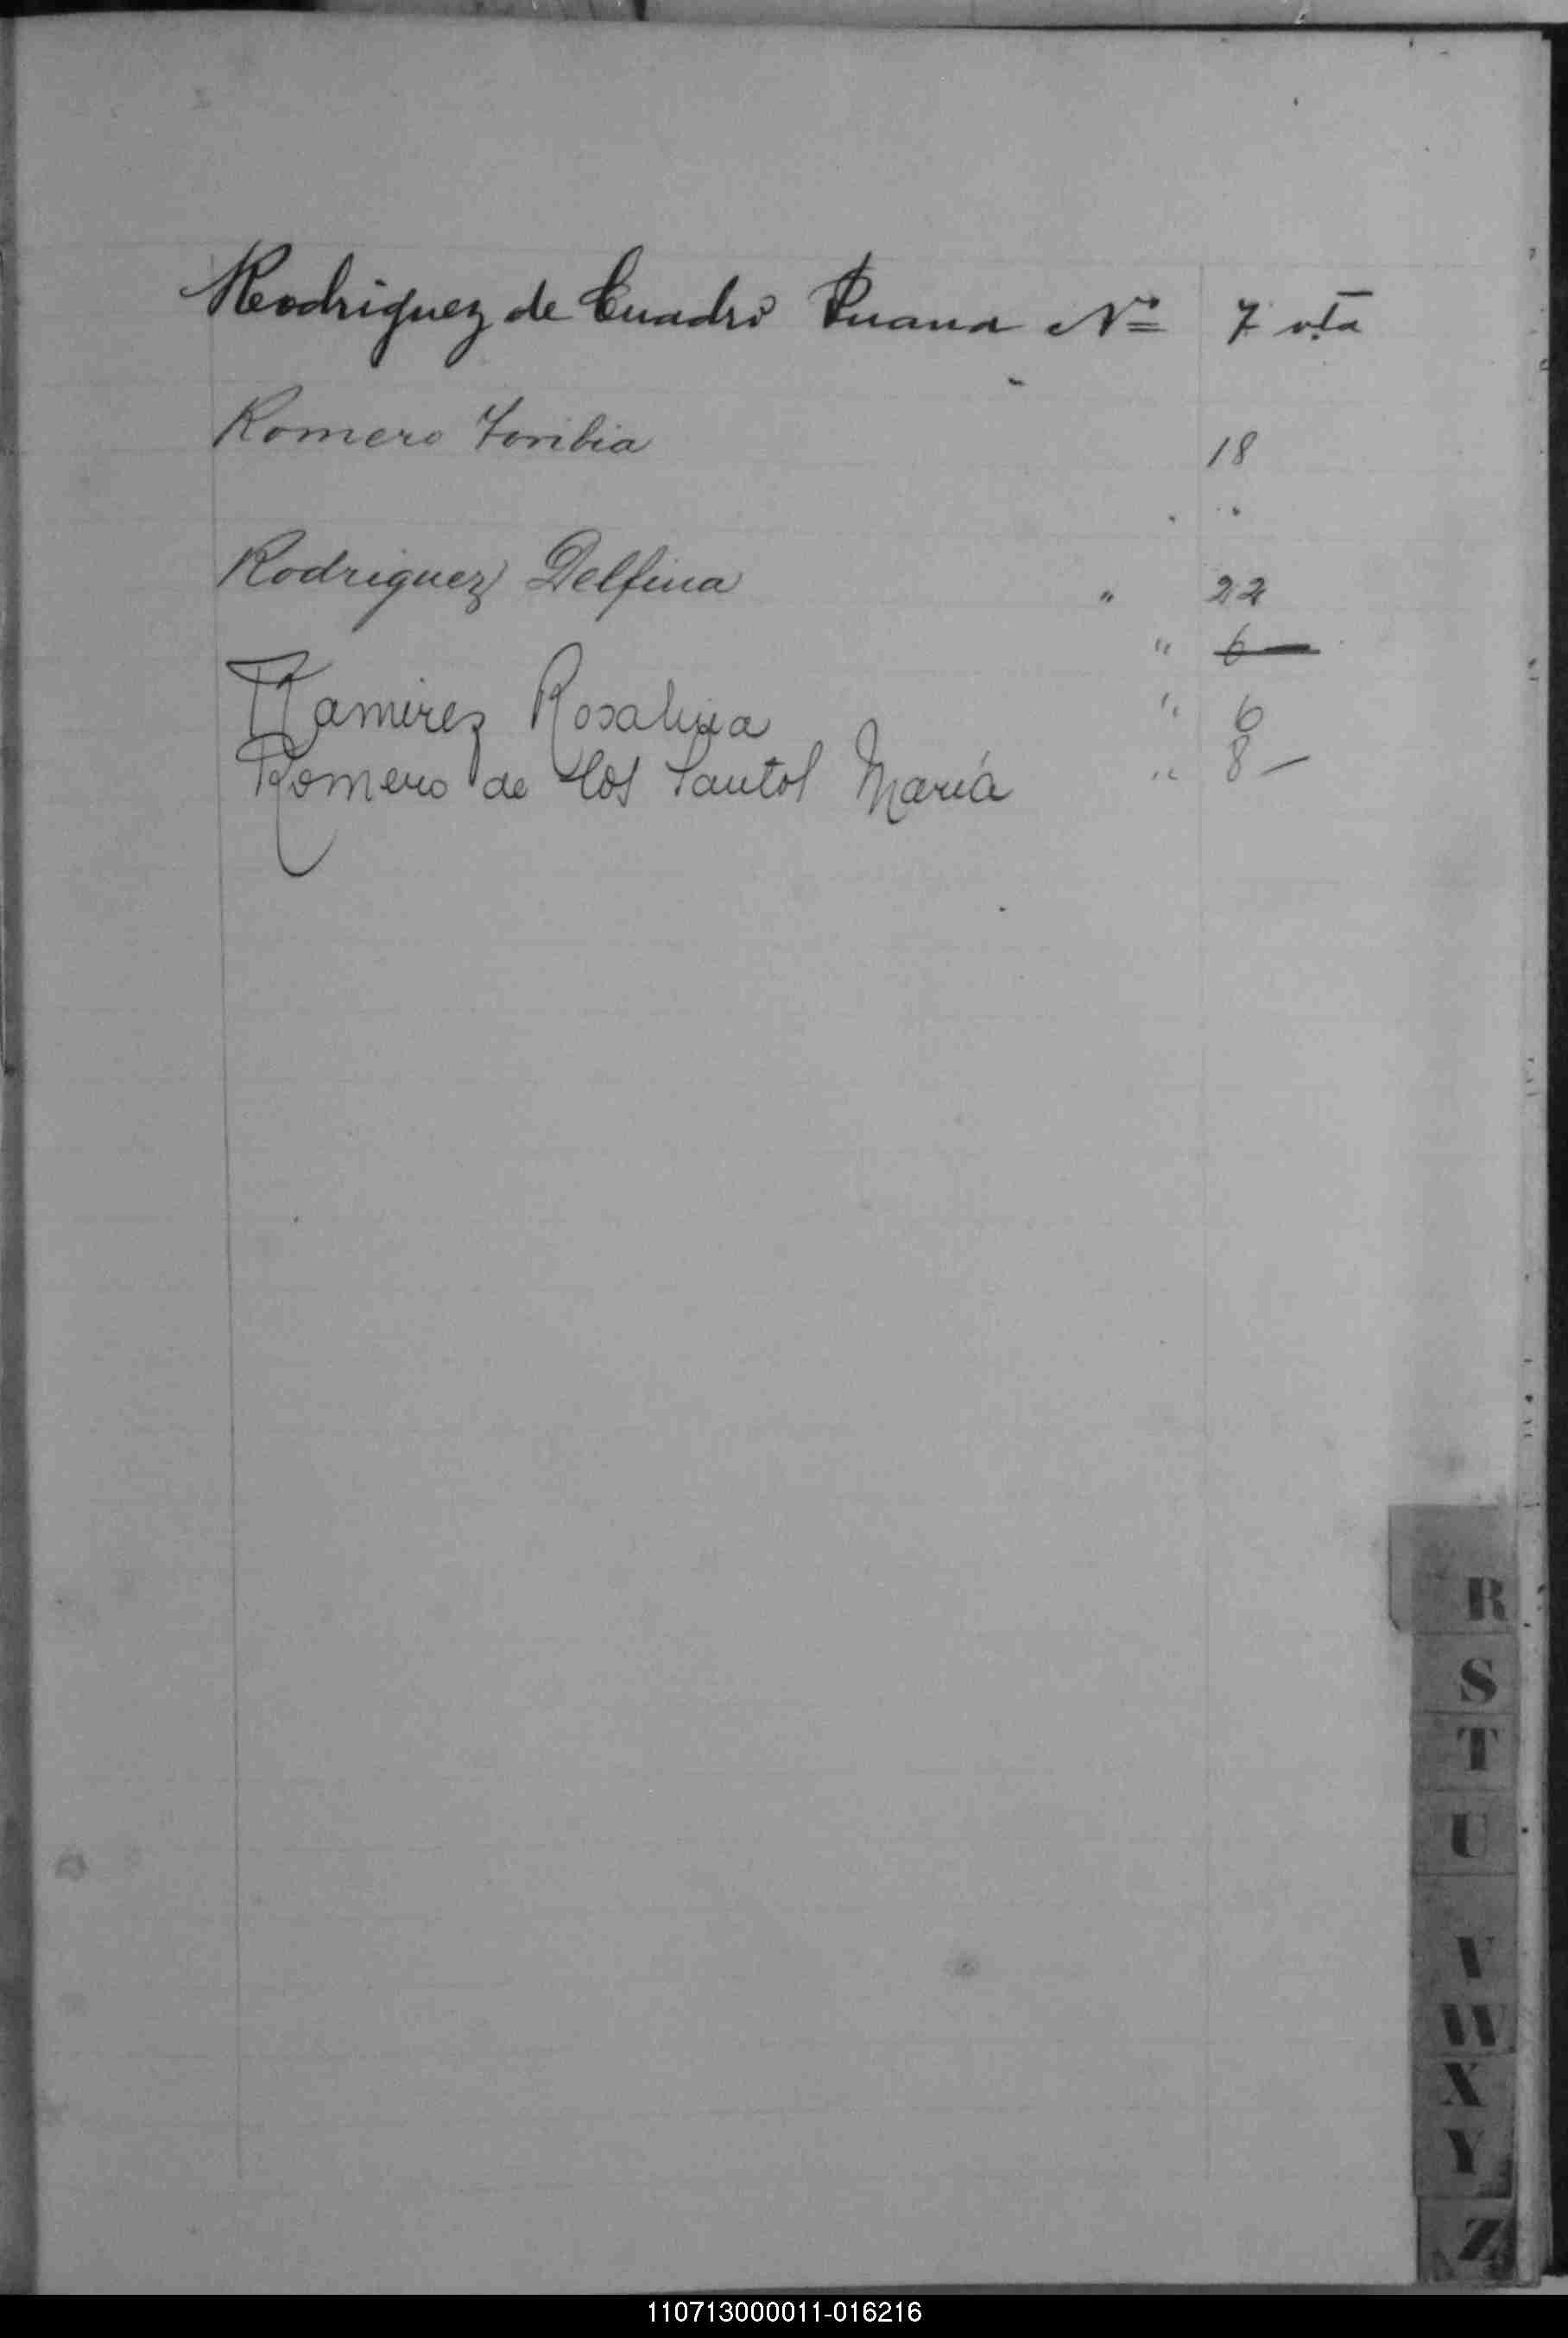 Rodriguez de Cuadro Juana Nº 7 vta
Romero Toribia 18
Rodriguez Delfina " 22
" 6
Ramirez Rosalina " 6
Romero de los Santos María " 8 —
R
S
T
U
V
W
X
Y
Z
110713000011-016216